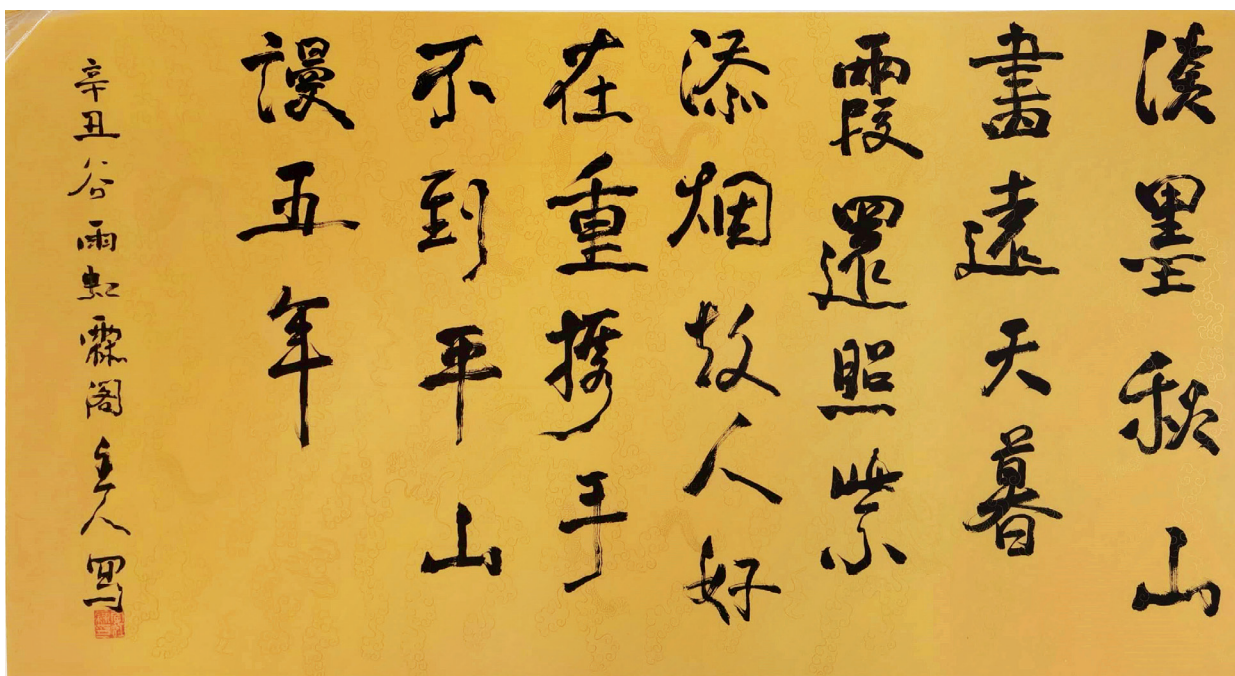 淡墨秋山
畫遠天暮
霞還照紫
添烟故人好
在重攜手
不到平山
謾五年
辛丑谷雨虹霖阁主人寫